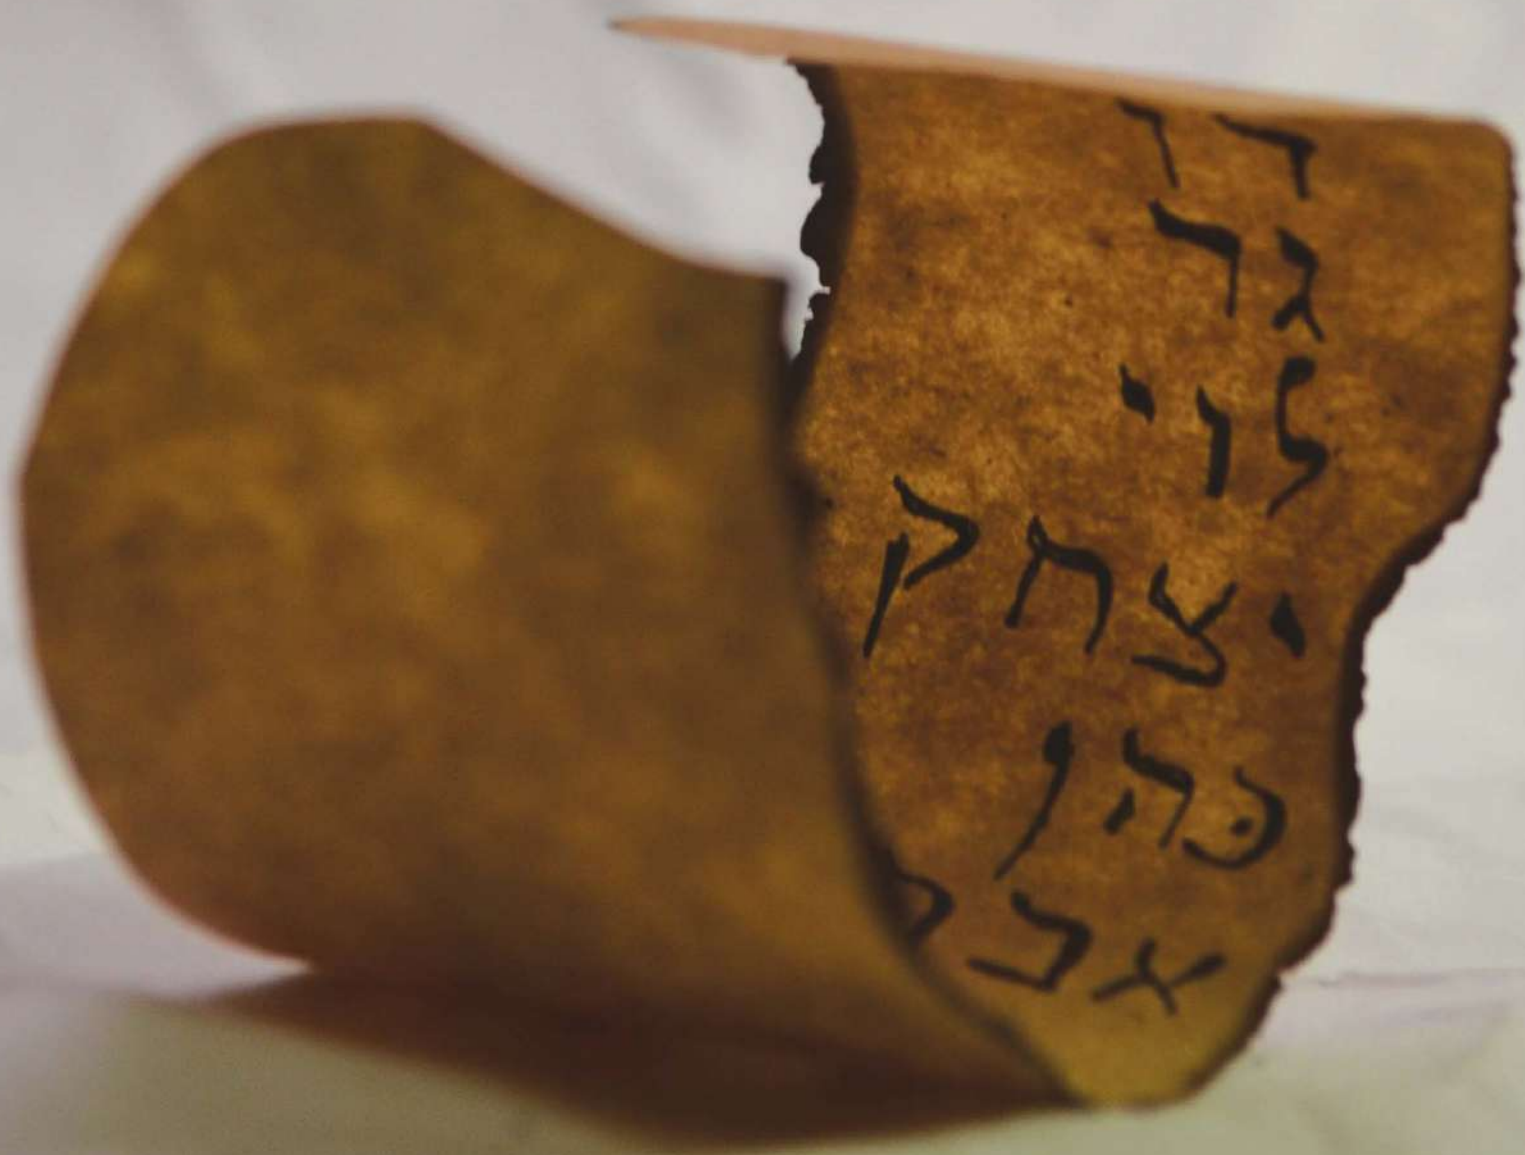 דן
גד
לוי
יצחק
כהן
אבר